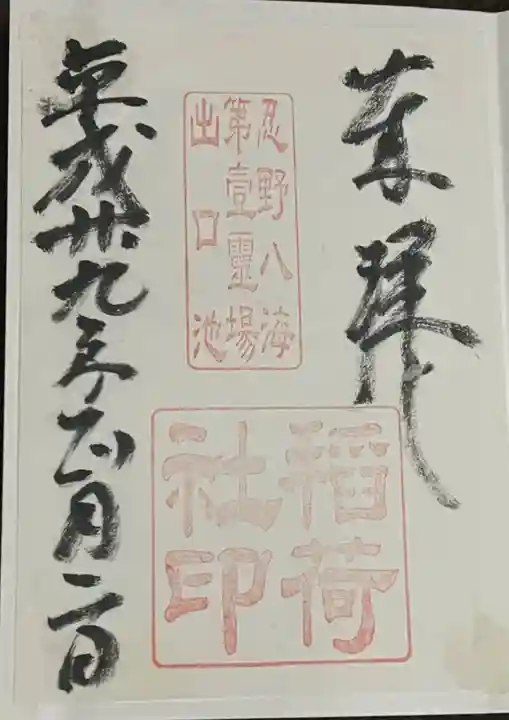 奉拝
忍野八海
第壹靈場
出口池
稲荷
社印
平成廿九年正月二日